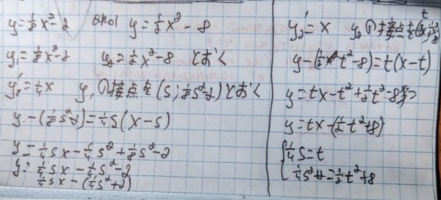 y=1/8x²-2 y=1/2x²-8
y₁=1/8x²-2 y₂=1/2x²-8 とおく
y₁'=1/4x y₁の接点を(s,1/8s²-2)とおく
y-(1/8s²-2)=1/4s(x-s)
y=1/4sx-1/4s²+1/8s²-2
y=1/4sx-1/8s²-2
1/4sx-(1/8s²+2)
y₂'=x y₂の接点を
y-(1/2t²-8)=t(x-t)
y=tx-t²+1/2t²-8
y=tx-(1/2t²+8)
1/4s=t